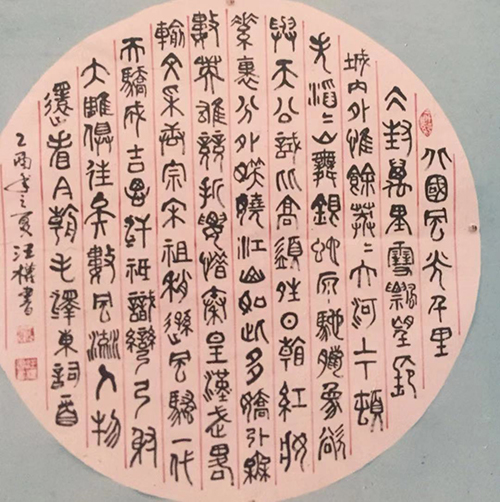 北國風光千里
冰封萬里雪飄望長
城內外惟餘莽莽大河上下頓
失滔滔山舞銀蛇原馳蠟象欲
與天公試比高須晴日看紅妝
素裹分外妖嬈江山如此多嬌引無
數英雄競折腰惜秦皇漢武略
輸文采唐宗宋祖稍遜風騷一代
天驕成吉思汗祇識彎弓射
大雕俱往矣數風流人物
還看今朝毛澤東詞雪
乙酉年之夏汪書